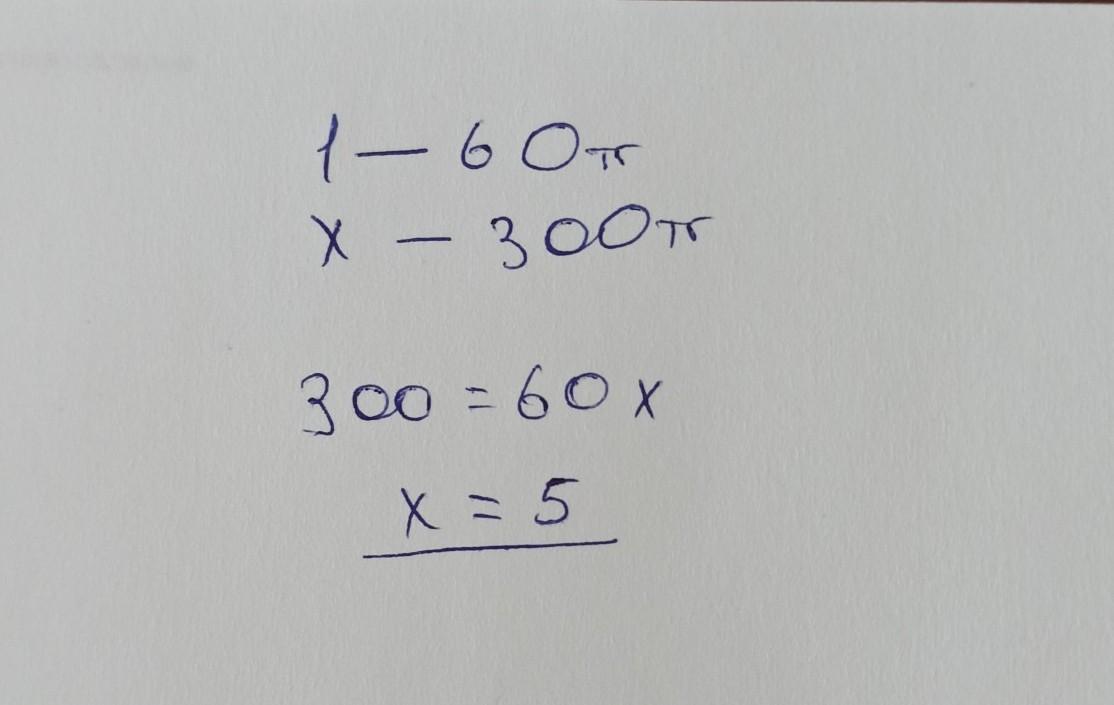 1 — 60π
x — 300π
300 = 60x
x = 5